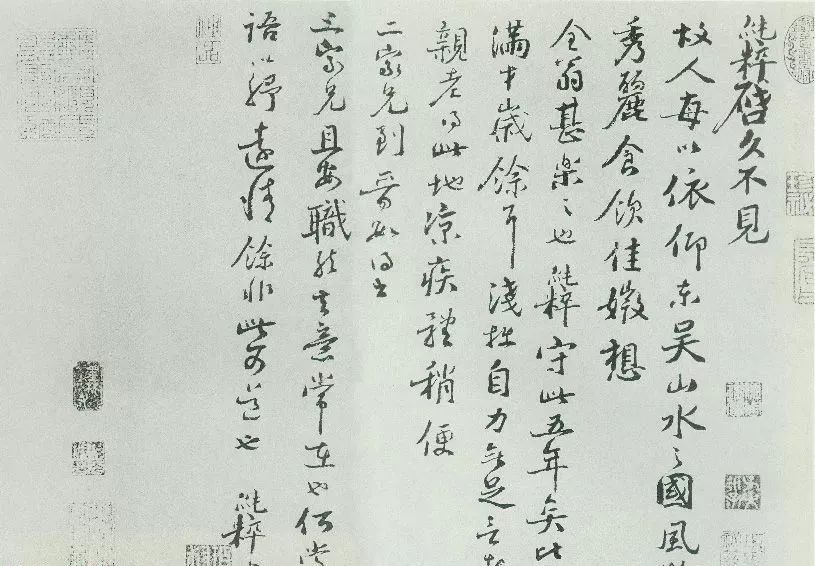 純粹啓久不見
故人每以依仰東吳山水之國風
秀麗食飲佳媺想
全翁甚樂之也純粹守此五年矣比
滿才歲餘耳淺拙自力無足言
親老得此地涼疾體稍便
二家兄到晉安得書
三家兄且安職然玄意常在也何當
語以紓遠情餘非此可道也純粹